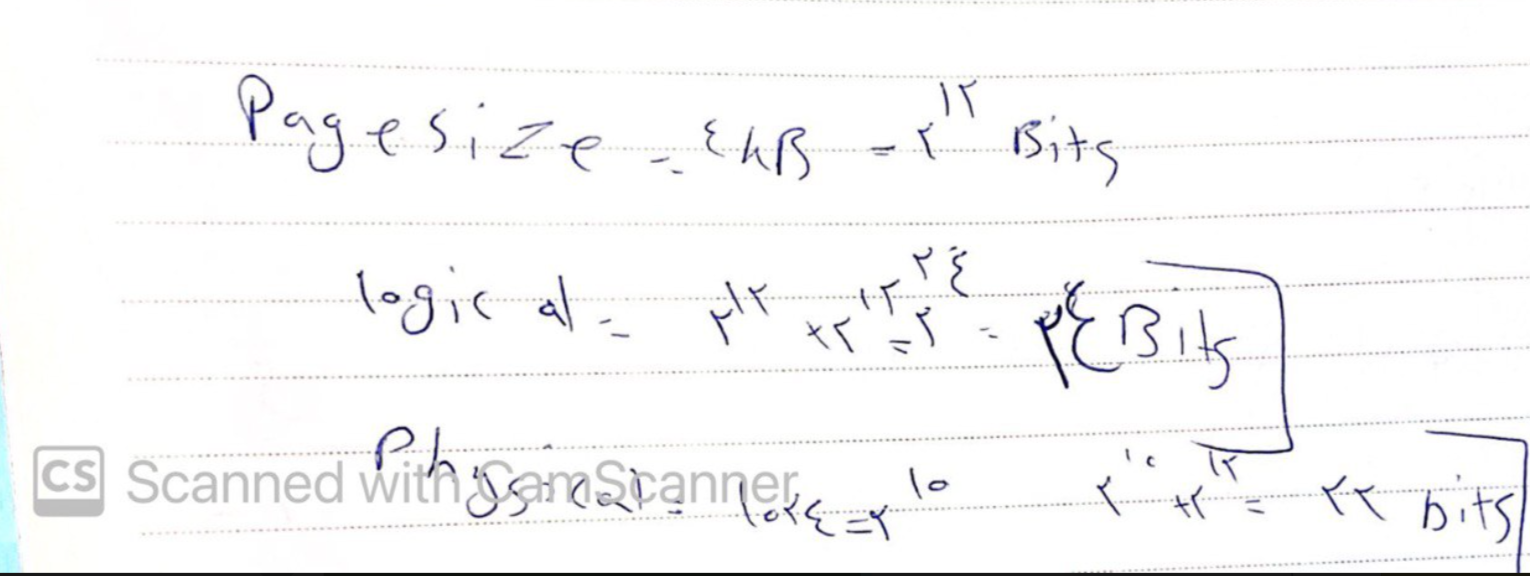 Page size = ٤KB = ٢^١٢ Bits
logical = ٢^١٢ + ٢^١٢ = ٢^٢٤ = ٢٤ Bits
Physical = ١٠٢٤ = ٢^١٠ ٢^١٠ + ٢^١٢ = ٢٢ bits
CS Scanned with CamScanner